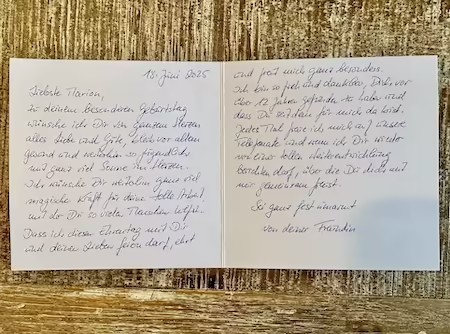 18. Juni 2025
Liebste Marion,
zu deinem besonderen Geburtstag
wünsche ich Dir von ganzem Herzen
alles Liebe und Gute, bleib vor allem
gesund und weiterhin so jugendlich
mit ganz viel Sonne im Herzen.
Ich wünsche Dir weiterhin ganz viel
magische Kraft für deine tolle Arbeit,
mit der Du so vielen Menschen hilfst.
Dass ich diesen Ehrentag mit Dir
und deinen Lieben feiern darf, ehrt
und freut mich ganz besonders.
Ich bin so froh und dankbar, Dich vor
über 12 Jahren gefunden zu haben und
dass Du seitdem für mich da bist.
Jedes Mal freue ich mich auf unsere
Telefonate und wenn ich Dir wieder
von einer tollen Weiterentwicklung
berichten darf, über die Du dich mit
mir gemeinsam freust.
Sei ganz fest umarmt
von deiner